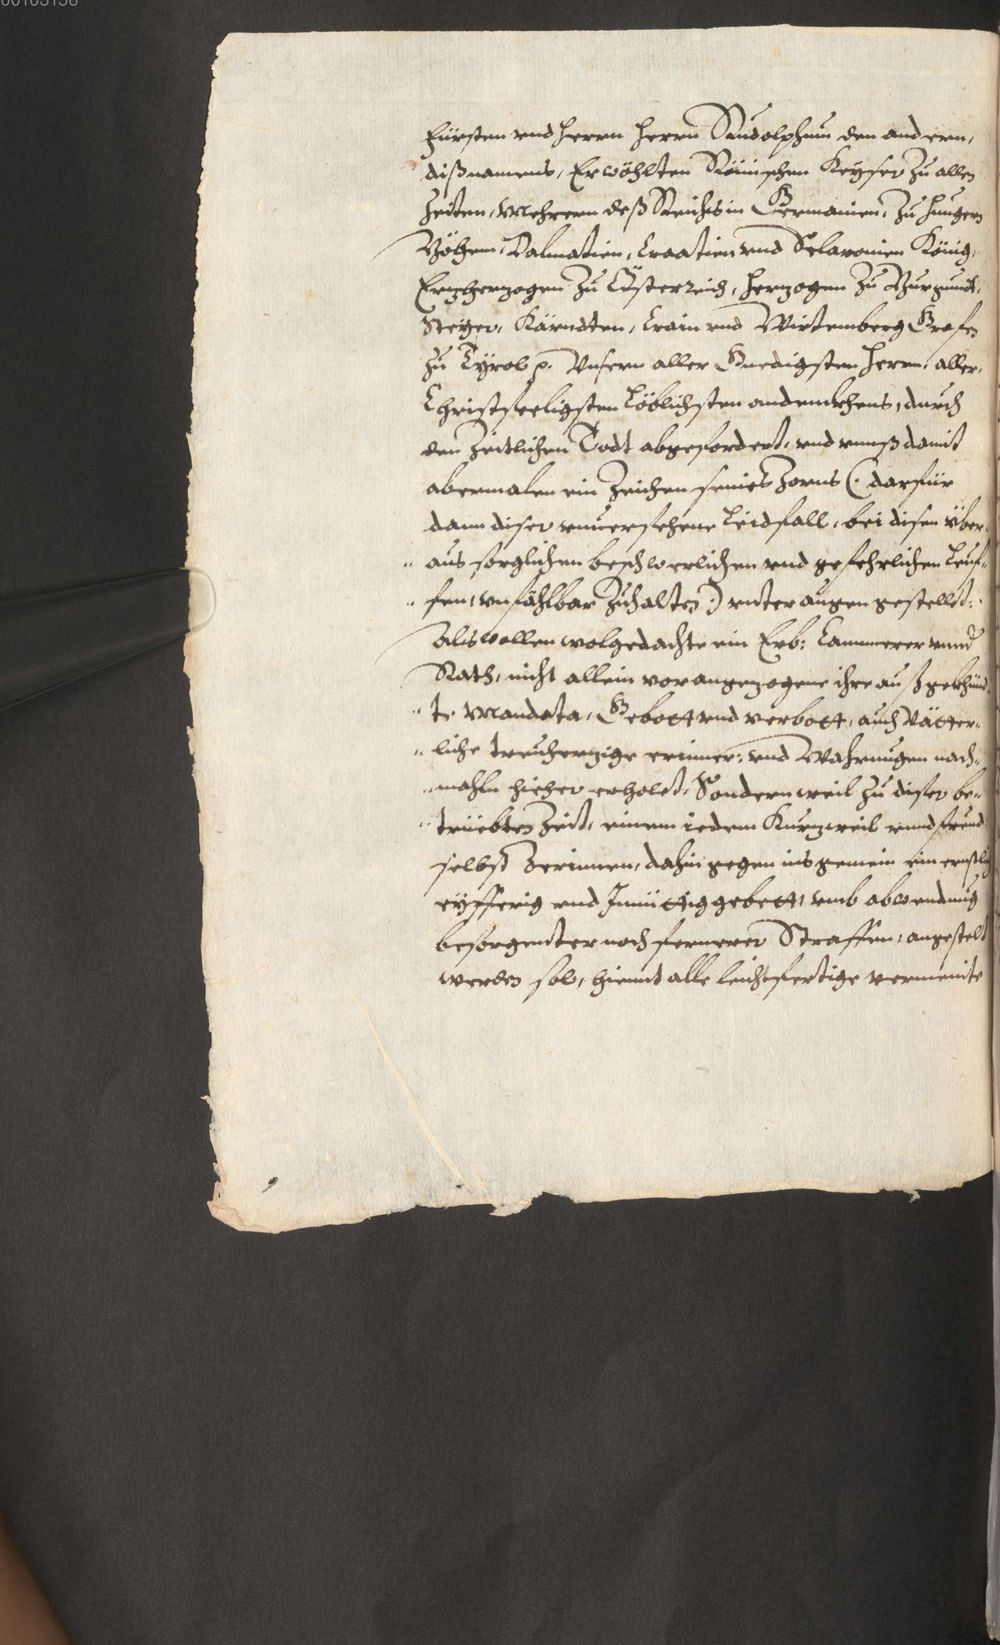 00103156
Fürsten vnd Herrn Herrn Rudolphum den andern,
dißnamens, Erwöhlten Römischen Keyser Zu allen
Zeiten, Mehrern deß Reichs in Germanien, Zu Hungern
Böhem, Dalmatien, Croatien vnd Sclavonien König,
Erzherzogen Zu Össterreich, Herzogen Zu Burgundt,
Steyer, Kärndten, Crain vnd Wirtemberg Grafen
Zu Tyrol p. Vnsern aller Gnedigsten Herrn, aller
Christseeligsten Löblichsten andenckhens, durch
den Zeitlichen Todt abgefordert, vnd vnnß damit
abermalen ein Zeichen seines Zorns (: darfür
dann diser vnuersehene Leidfall, bei disen über
aus sorglichen beschwerlichen vnd gefehrlichen Leuf-
fen, vnfählbar Zuhalten :) vnter augen gestellet:
Als wollen wolgedachte ein Erb: Cammerer vnnd
Rath, nicht allein vorangezogene ihre außgekhünd
te Mandata, Gebott vnd verbott, auch Vätter-
liche treuherzige erinner: vnd Wahrnugen nach-
mahln hieher erholet, Sondern weil Zu diser be-
trüebten Zeit, einem iedem Kurzweil vnnd freud
selbst Zerinnen, dahingegen ins gemein ein ernstlig
eyfferig vnd Inniittig gebett, vmb abwendung
besorgenter noch fernerer Straffen, angestelt
werden sol, hiemit alle leichtfertige vermeinte